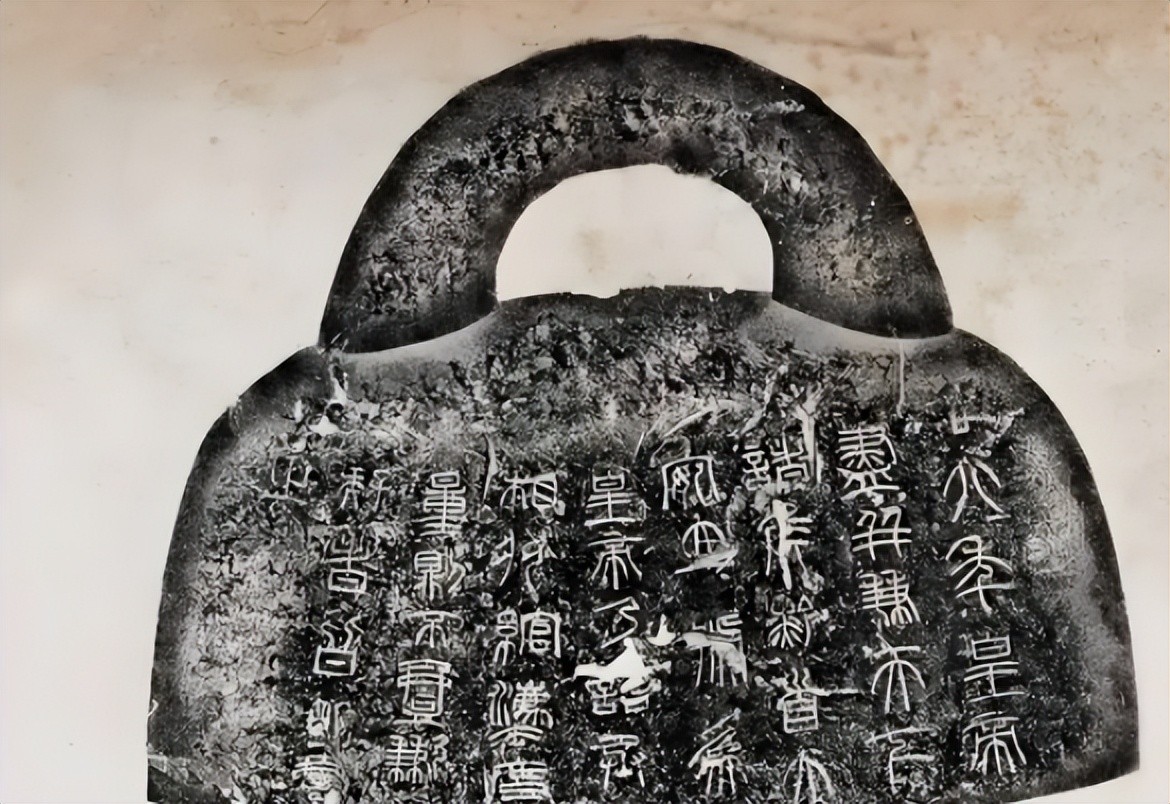 廿六年皇帝
盡并兼天下
諸侯黔首大
安立號為
皇帝乃詔丞
相狀綰灋度
量則不壹歉
疑者皆明壹
之